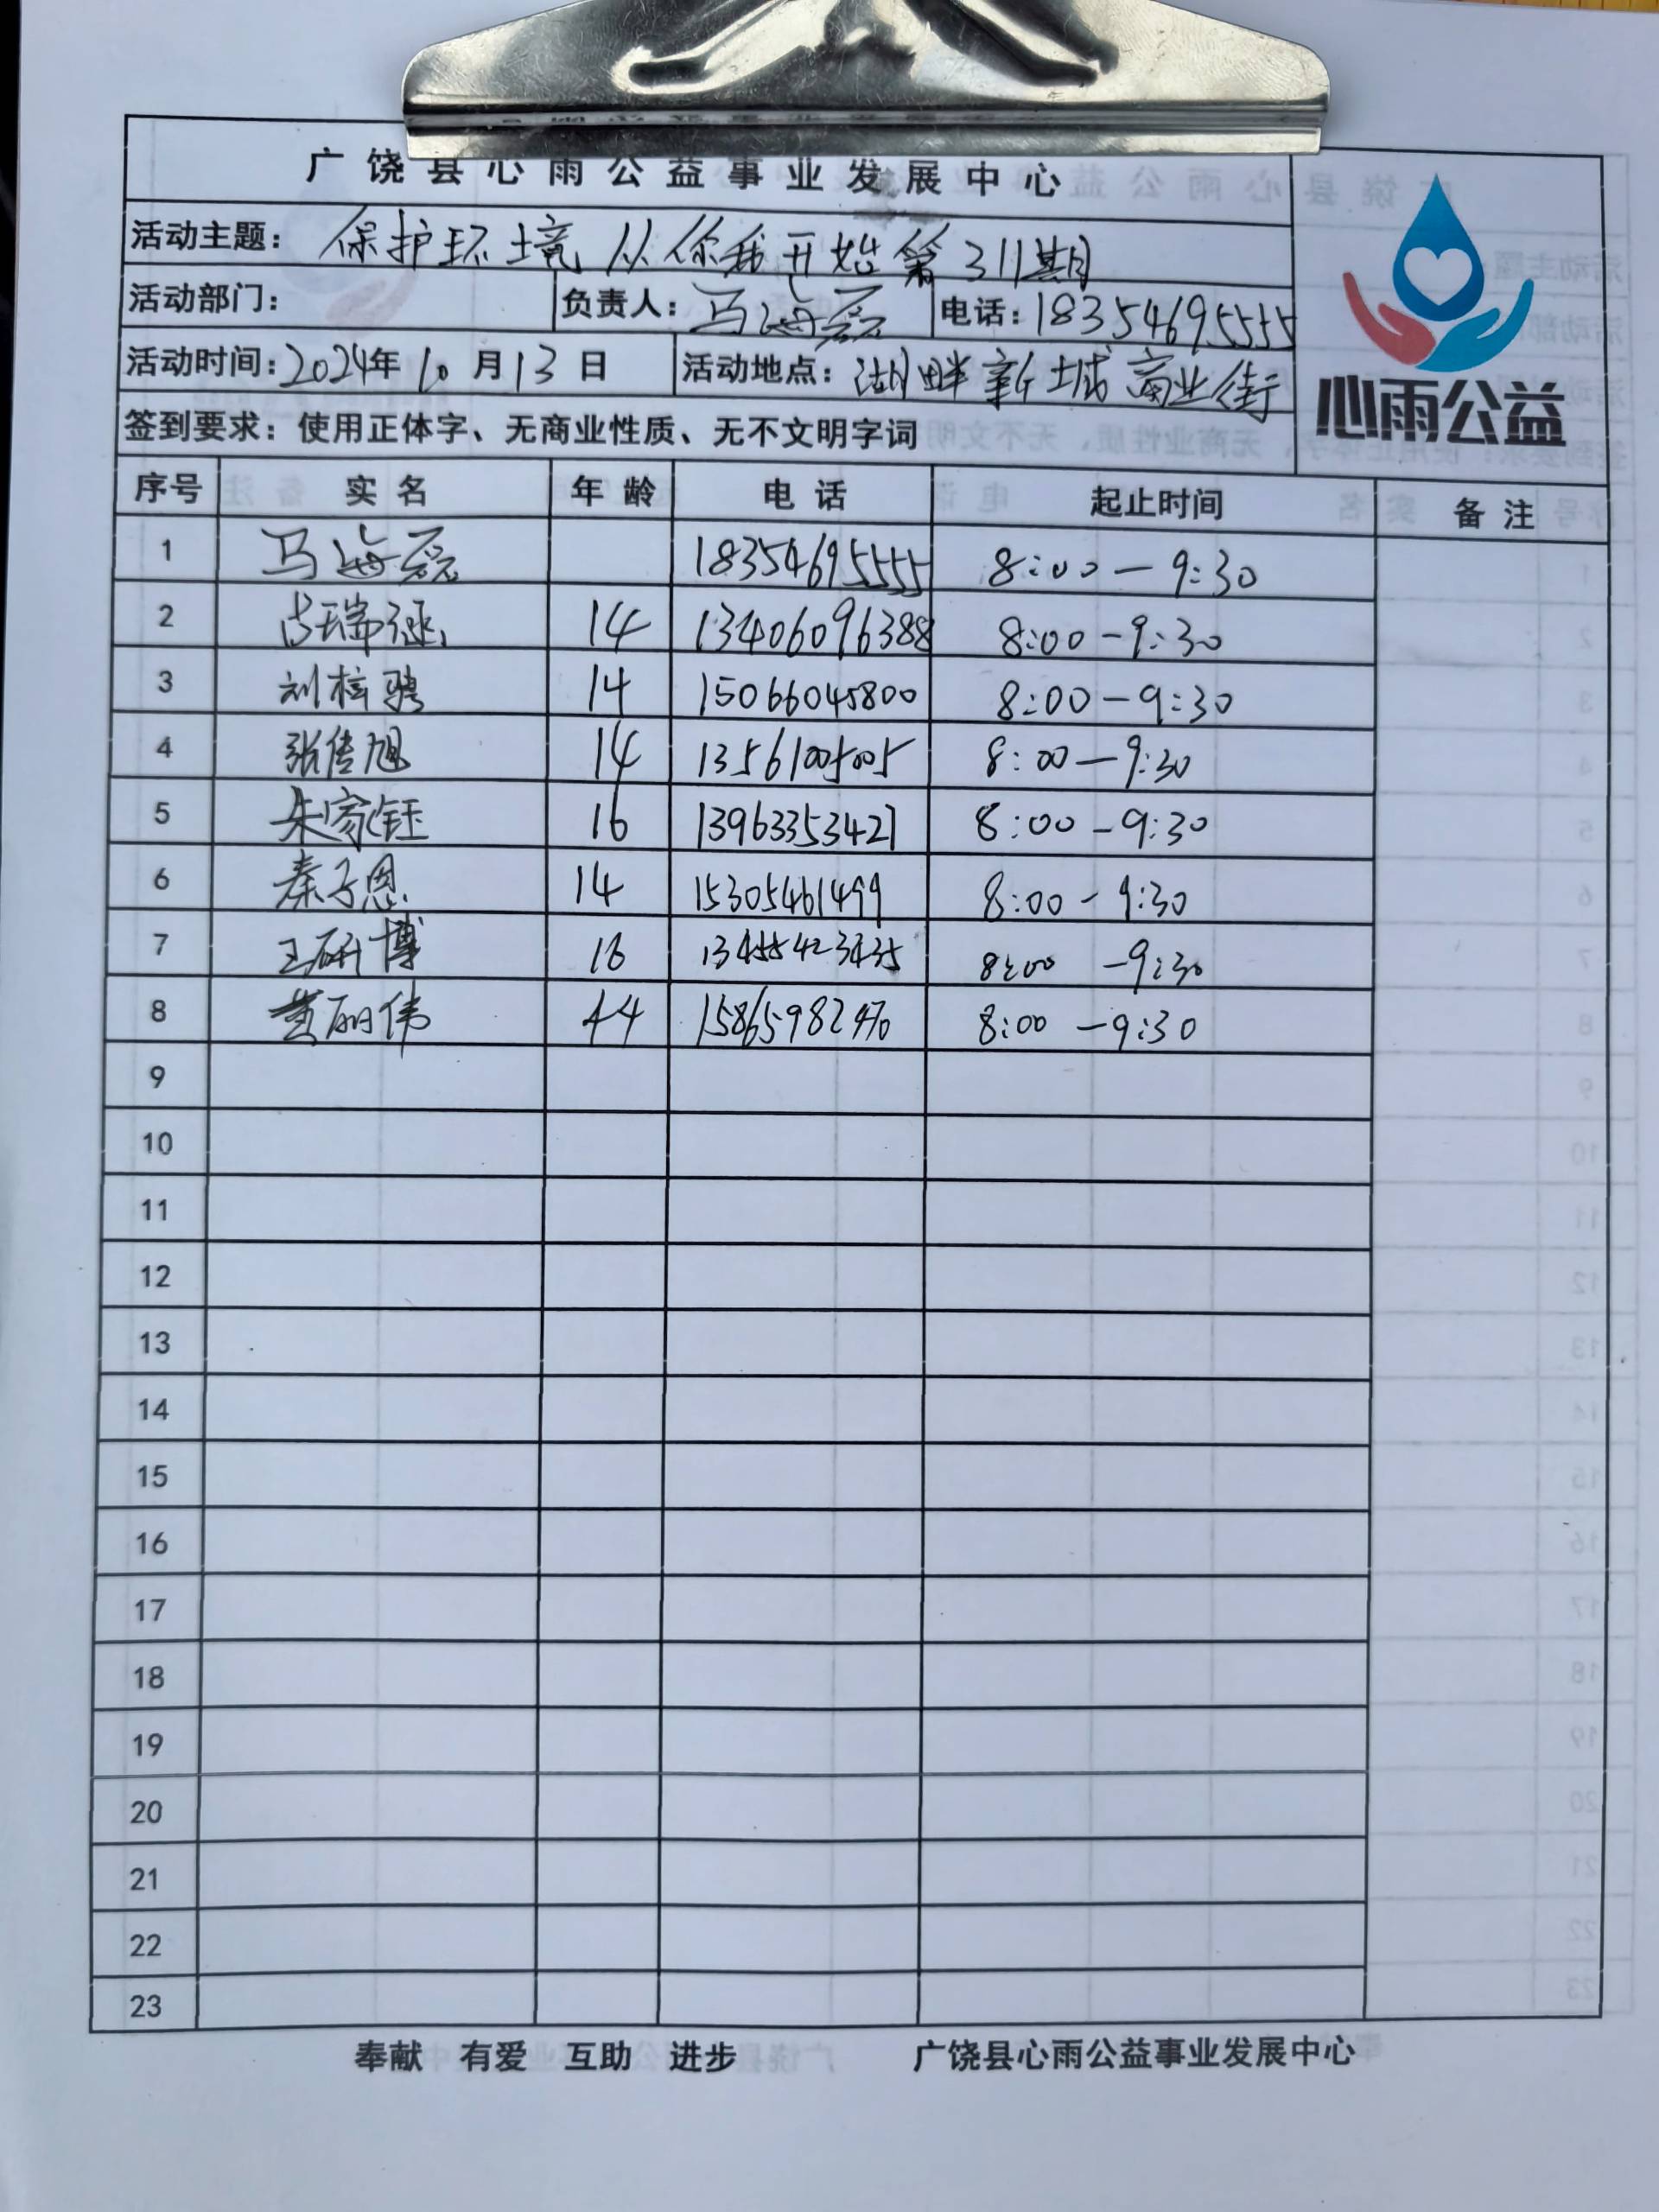 广饶县心雨公益事业发展中心
活动主题：保护环境从你我开始第311期
心雨公益
活动部门： 负责人：马海磊 电话：18354695555
活动时间：2024年10月13日 活动地点：湖畔新城商业街
签到要求：使用正体字、无商业性质、无不文明字词
序号 实名 年龄 电话 起止时间 备注
1 马海磊 18354695555 8:00—9:30
2 14 13406096388 8:00-9:30
3 14 15066045800 8:00-9:30
4 张佳旭 14 13561005005 8:00—9:30
5 朱家钰 16 13963353427 8:00-9:30
6 秦子恩 14 15305461499 8:00-9:30
7 王研博 16 13455423435 8:00 -9:30
8 黄丽伟 44 15865982470 8:00 -9:30
9
10
11
12
13
14
15
16
17
18
19
20
21
22
23
奉献 有爱 互助 进步 广饶县心雨公益事业发展中心